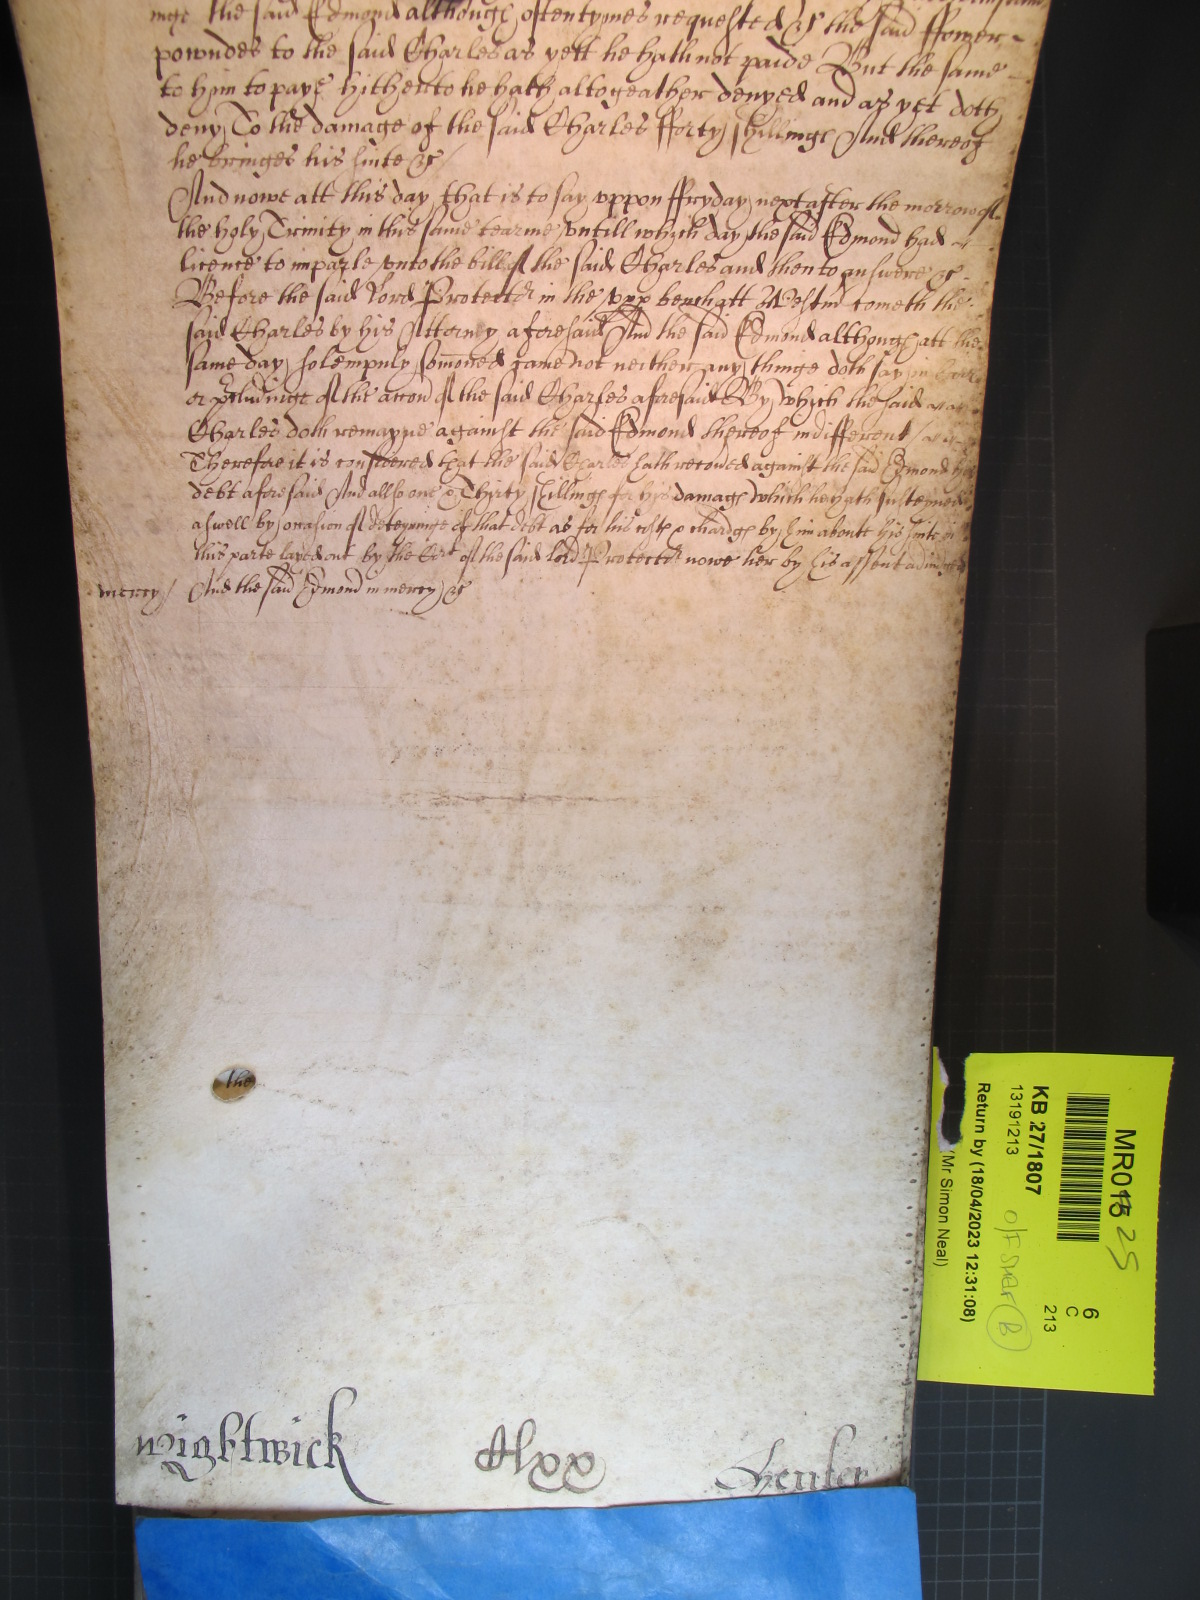 the said Edmond although oftentymes requested &c the said ffower
powndes to the said Charles as yett he hath not paide But the same
to him to paye hitherto he hath altogeather denyed and as yet doth
deny To the damage of the said Charles fforty shillings And thereof
he bringes his suite &c
And nowe att this day that is to say uppon ffryday next after the morrow of
the holy Trinity in this same tearme untill which day the said Edmond had
licence to imparle unto the bill of the said Charles and then to answere &c
Before the said Lord Protector in the upp bench att Westm cometh the
said Charles by his Attorney aforesaid And the said Edmond although att the
same day solempnly somoned came not neither any thinge doth say in barr
or of the accon of the said Charles aforesaid By which the said
Charles doth remayne against the said Edmond thereof indifferent
Therefore it is considered that the said Charles hath recoved against the said Edmond his
debt aforesaid And allso one & Thirty shillings for his damags which he hath susteyned
aswell by occasion of deteyninge of that debt as for his costs & chardgs by him aboute his suite in
this parte layed out by the Cort of the said lord Protector nowe her by his assent adiudged
mercy And the said Edmond in mercy &c
the
Wightwick
lxx
MR018 25
6
C
213
KB 27/1807
13191213
O/F SHELF B
Return by (18/04/2023 12:31:08)
(Mr Simon Neal)